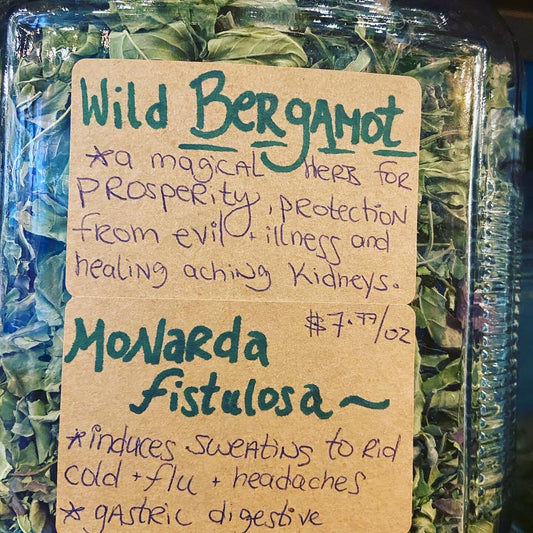 Wild Bergamot
*a magical herb for
prosperity, protection
from evil + illness and
healing aching kidneys.
$7.99/oz
Monarda
fistulosa ~
*induces sweating to rid
cold + flu + headaches
* gastric digestive